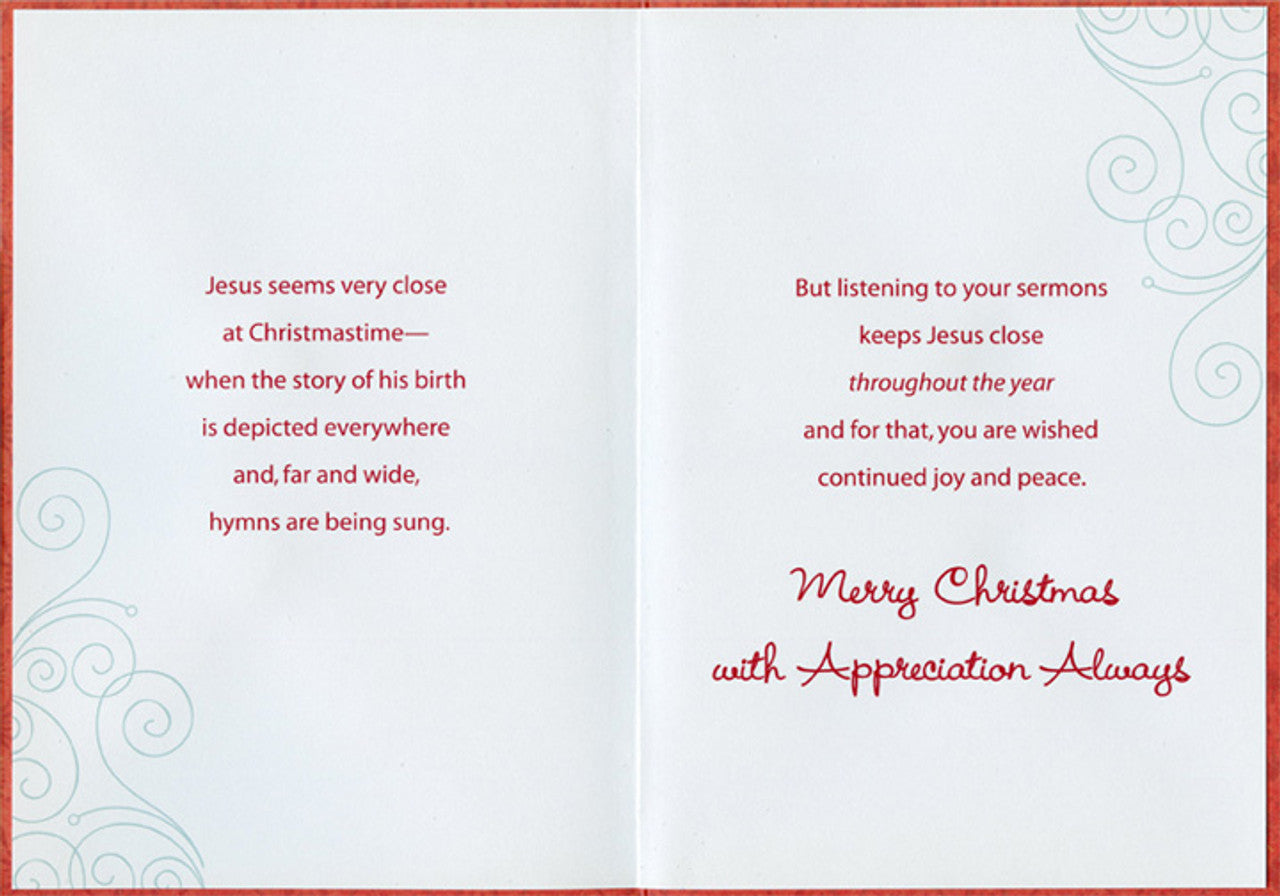 Jesus seems very close
at Christmastime—
when the story of his birth
is depicted everywhere
and, far and wide,
hymns are being sung.
But listening to your sermons
keeps Jesus close
throughout the year
and for that, you are wished
continued joy and peace.
Merry Christmas
with Appreciation Always